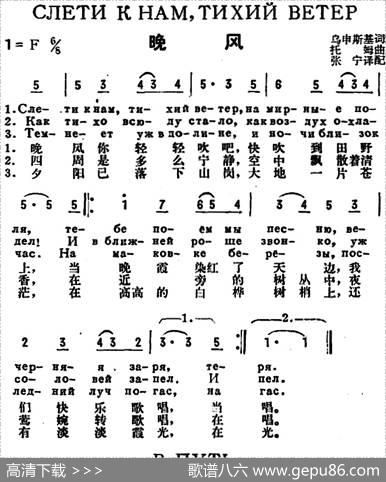 СЛЕТИ К НАМ, ТИХИЙ ВЕТЕР
1 = F 6/8 晚风 乌申斯基词
托姆曲
张宁译配
5 5 3 43 4 5 5 3 43 4
1. Сле- ти к нам, ти- хий ве- тер, на мир- ны- е по-
2. Как ти- хо всю- ду ста- ло, как воз- дух о- хла-
3. Тем- не- ет уж в до- ли- не, и но- чи бли- зок
1. 晚风你轻轻吹吧,快吹到田野
2. 四周是多么宁静,空中飘散着清
3. 夕阳已落下山岗,大地一片苍
5 · 5 5 1 7 1 2 65 4 5 1 7
ля, те- бе по- ем мы пес- ню, ве-
дел! И в ближ- ней ро- ще звон- ко, уж
час. На ма- ков- ке бе- ре- зы, пос-
上,当晚霞染红了天边,我
香,在近旁的树丛中,夜
茫,在高高的白桦树梢上,还
1. 2.
2 3 43 2 1 · 3 5 1 · 1
чер- ня- я за- ря, те- ря.
со- ло- вей за- пел. И пел.
лед- ний луч по- гас, на гас.
们快乐歌唱,当唱。
莺婉转歌唱,在唱。
有淡淡霞光,在光。
高清下载 >>> 歌谱八六 www.gepu86.com